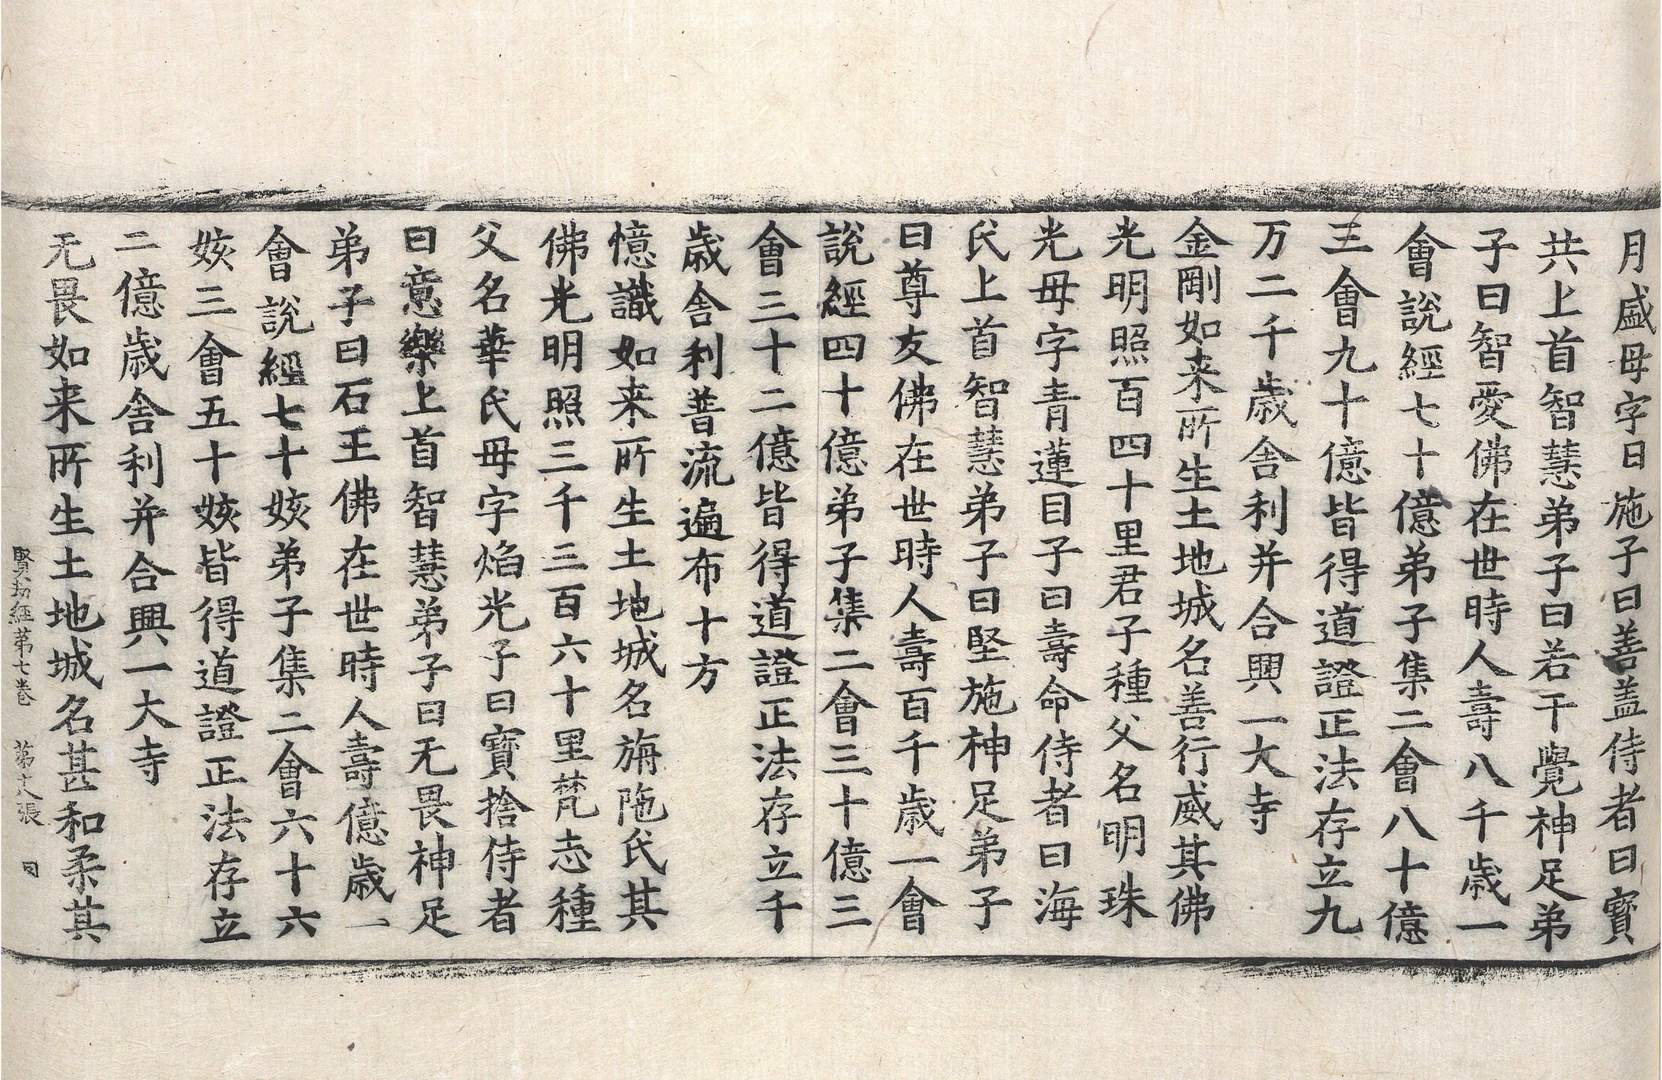 月盛母字日施子曰善盖侍者曰寶
共上首智慧弟子曰若干覺神足弟
子曰智愛佛在世時人壽八千歳一
會說經七十億弟子集二會八十億
三會九十億皆得道證正法存立九
万二千歳舎利并合興一大寺
金剛如来所生土地城名善行威其佛
光明照百四十里君子種父名明珠
光母字青蓮目子曰壽命侍者曰海
氏上首智慧弟子曰堅施神足弟子
曰尊友佛在世時人壽百千歳一會
說經四十億弟子集二會三十億三
會三十二億皆得道證正法存立千
歳舎利普流遍布十方
憶識如来所生土地城名旃陁氏其
佛光明照三千三百六十里梵志種
父名華氏母字焰光子曰寶捨侍者
曰意樂上首智慧弟子曰无畏神足
弟子曰石王佛在世時人壽億歳一
會說經七十姟弟子集二會六十六
姟三會五十姟皆得道證正法存立
二億歳舎利并合興一大寺
无畏如来所生土地城名甚和柔其
賢劫經第七卷 第丈張 因